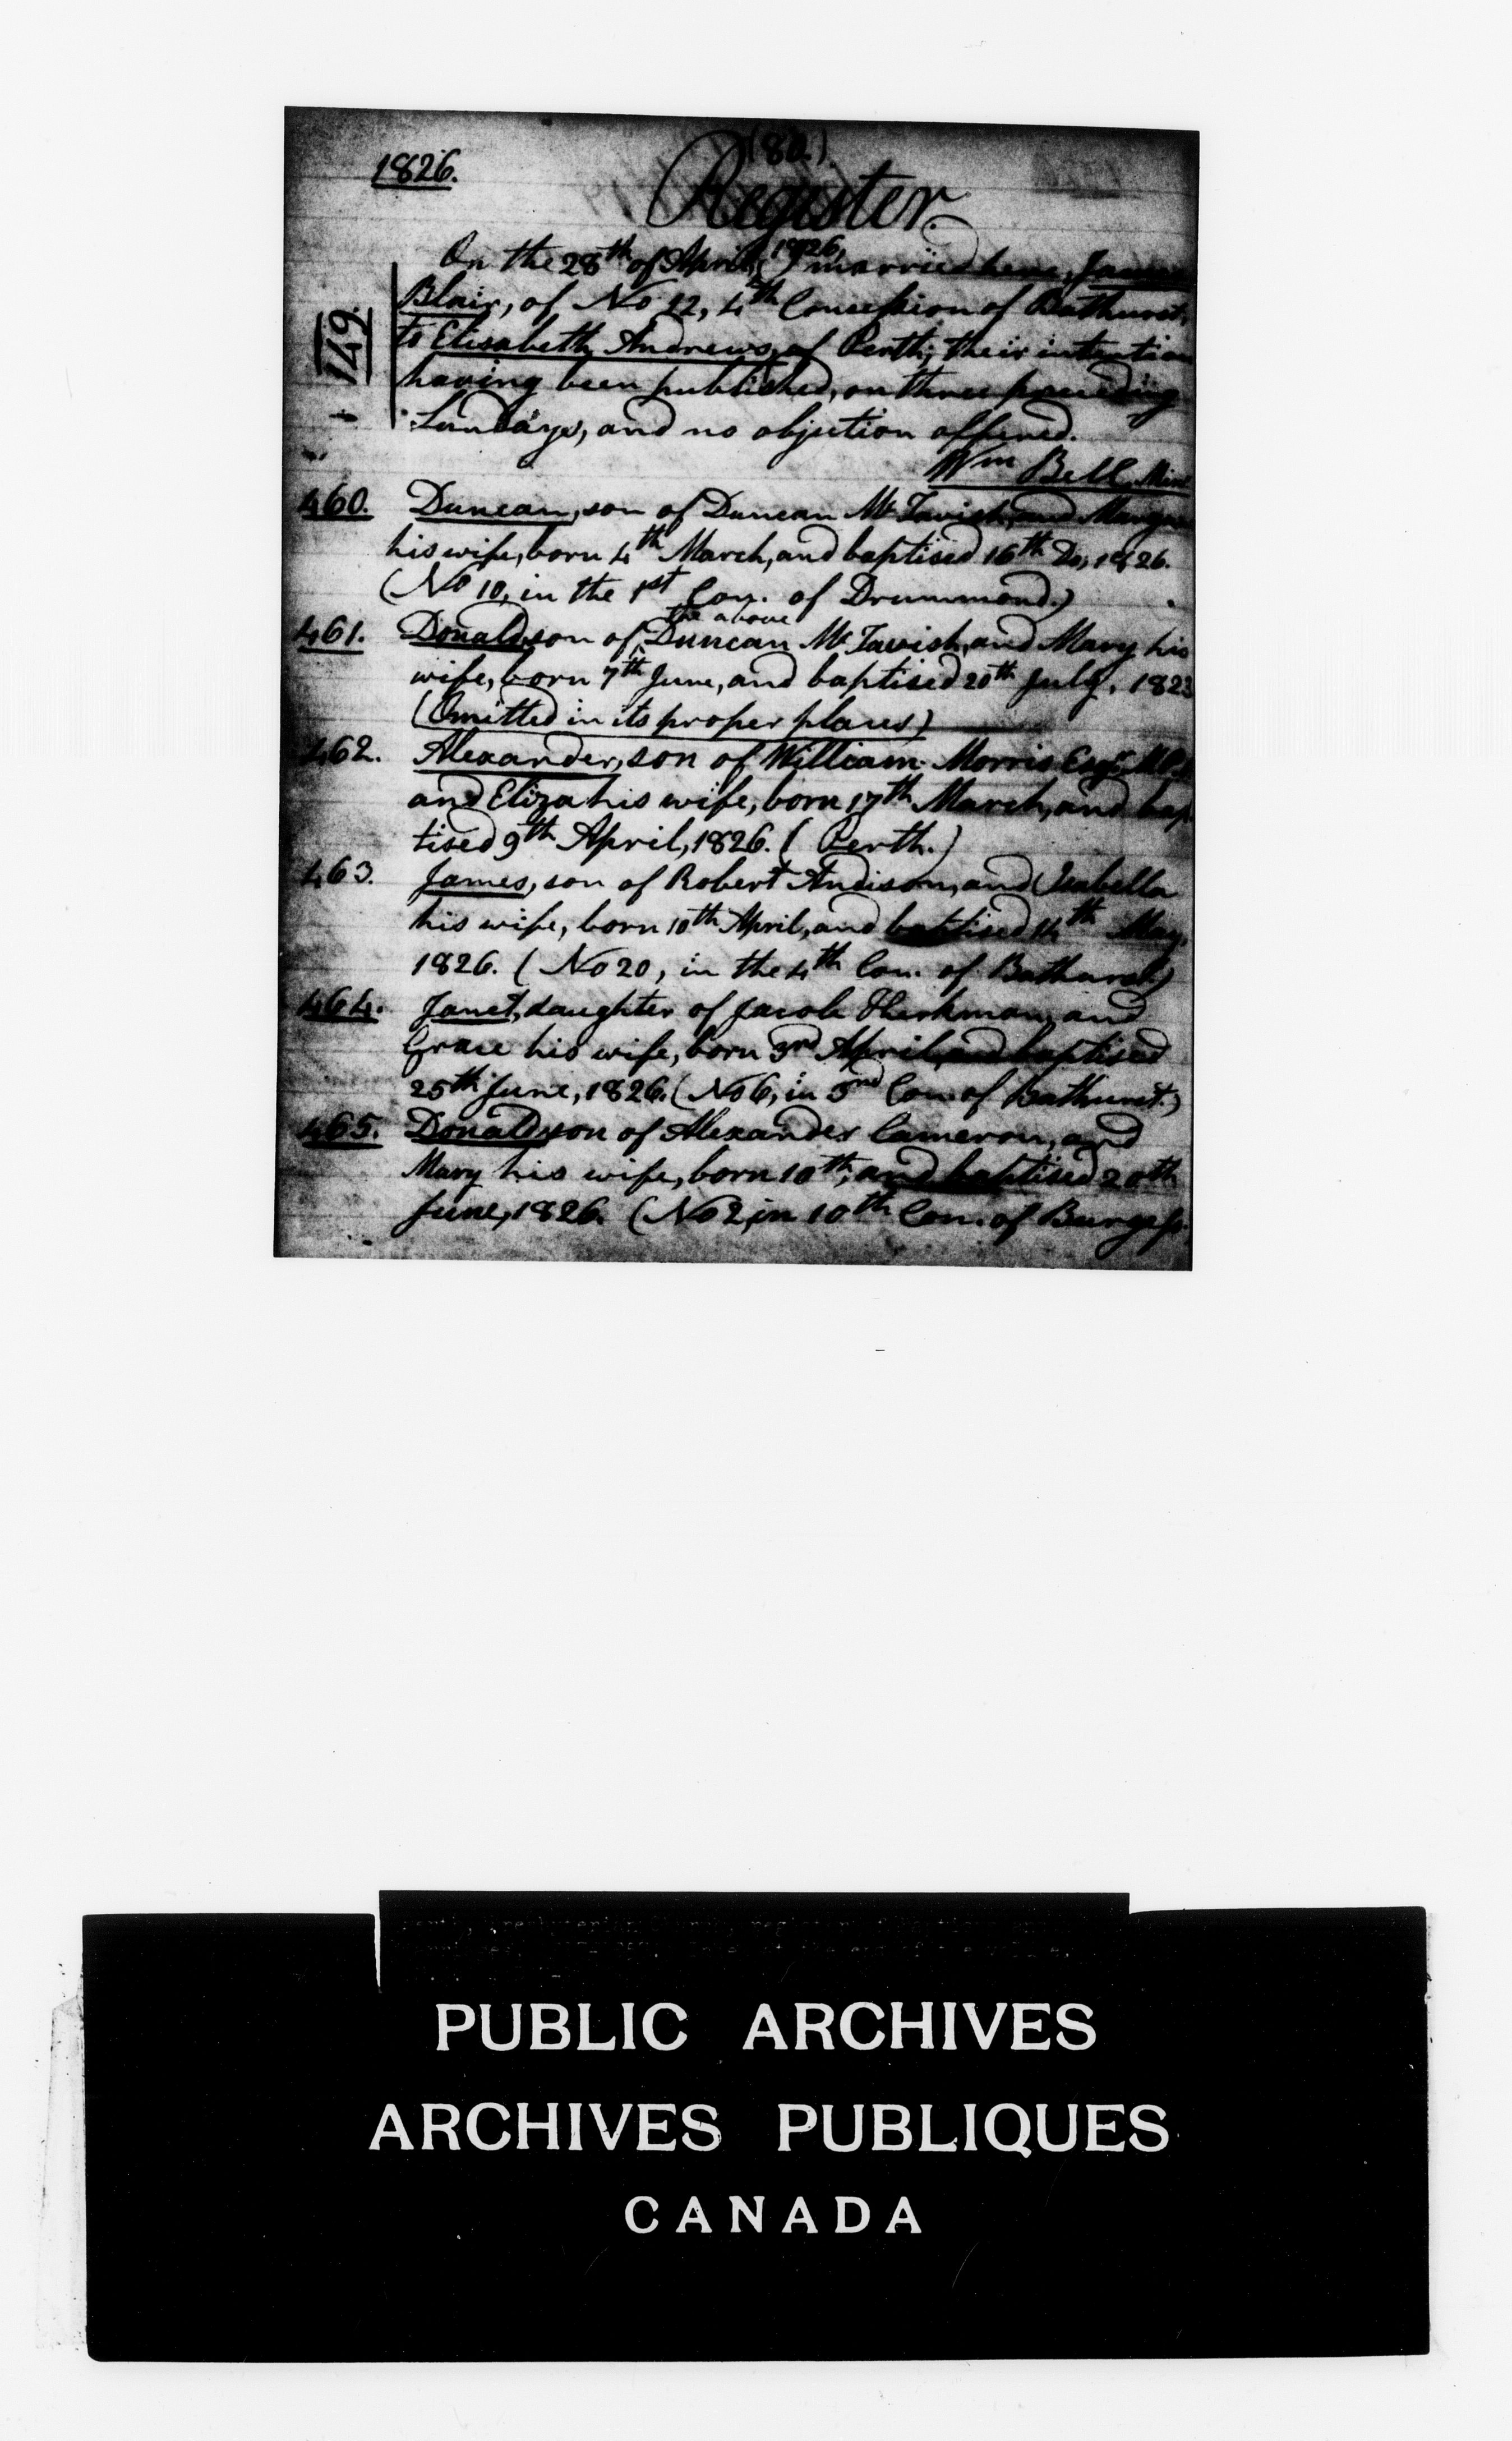 (80.)
1826.
Register.
On the 28th of April, 1826, married here, James
Blair, of No 12, 4th Concession of Bathurst,
149.
to Elisabeth Andrews, of Perth, their intention
having been published, on three preceeding
Sundays, and no objection offered.
Wm Bell, Minr
460. Duncan, son of Duncan McTavish, and
his wife, born 4th March, and baptised 16th Do, 1826.
(No 10, in the 1st Con. of Drummond.)
461. Donald, son of the above Duncan McTavish, and Mary his
wife, born 7th June, and baptised 20th July, 1823
(Omitted in its proper place)
462. Alexander, son of William Morris Esqr.
and Eliza his wife, born 17th March, and bap
tised 9th April, 1826. (Perth.)
463. James, son of Robert Andison, and Isabella
his wife, born 10th April, and baptised 14th May,
1826. (No 20, in the 4th Con. of Bathurst)
464. Janet, daughter of Jacob and
Grace his wife, born 3rd April, and baptised
25th June, 1826. (No 6, in 3nd Con of Bathurst.)
465. Donald, son of Alexander Cameron, and
Mary his wife, born 10th, and baptised 20th
June, 1826. (No 2, in 10th Con. of Burgess.
PUBLIC ARCHIVES
ARCHIVES PUBLIQUES
CANADA